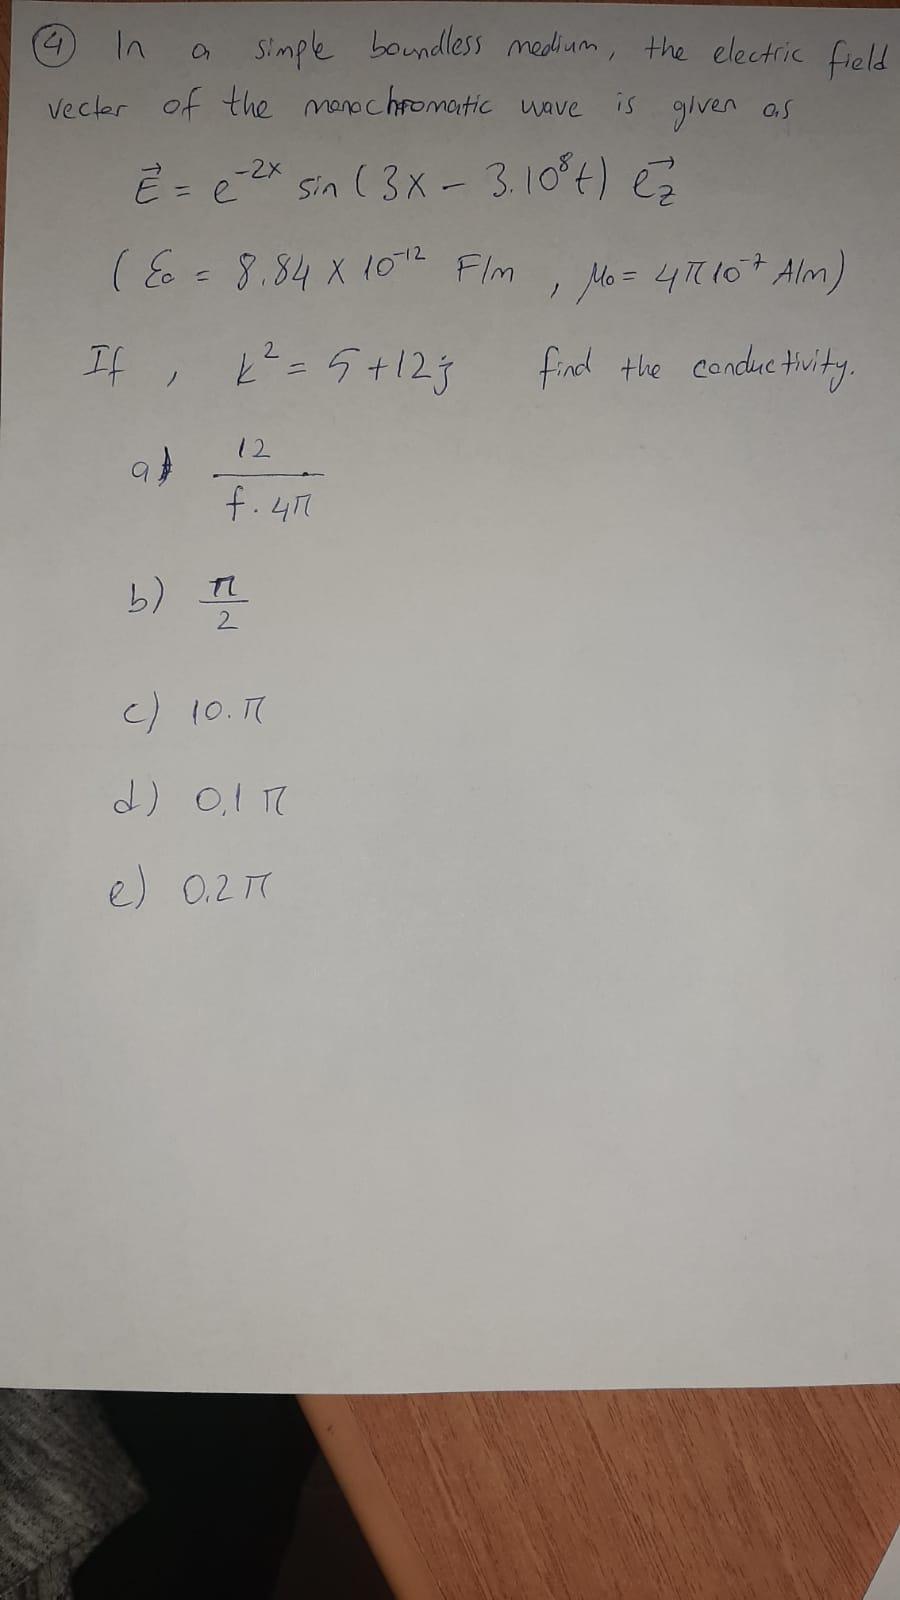 ④ In a simple boundless medium, the electric field
vector of the monochromatic wave is given as
E⃗ = e^-2x sin (3x - 3.10^8t) e⃗z
(ε0 = 8.84 x 10^-12 F/m , μ0 = 4π10^-7 A/m)
If , k^2 = 5 + 12j find the conductivity.
a) 12 / f.4π
b) π / 2
c) 10.π
d) 0,1 π
e) 0.2 π